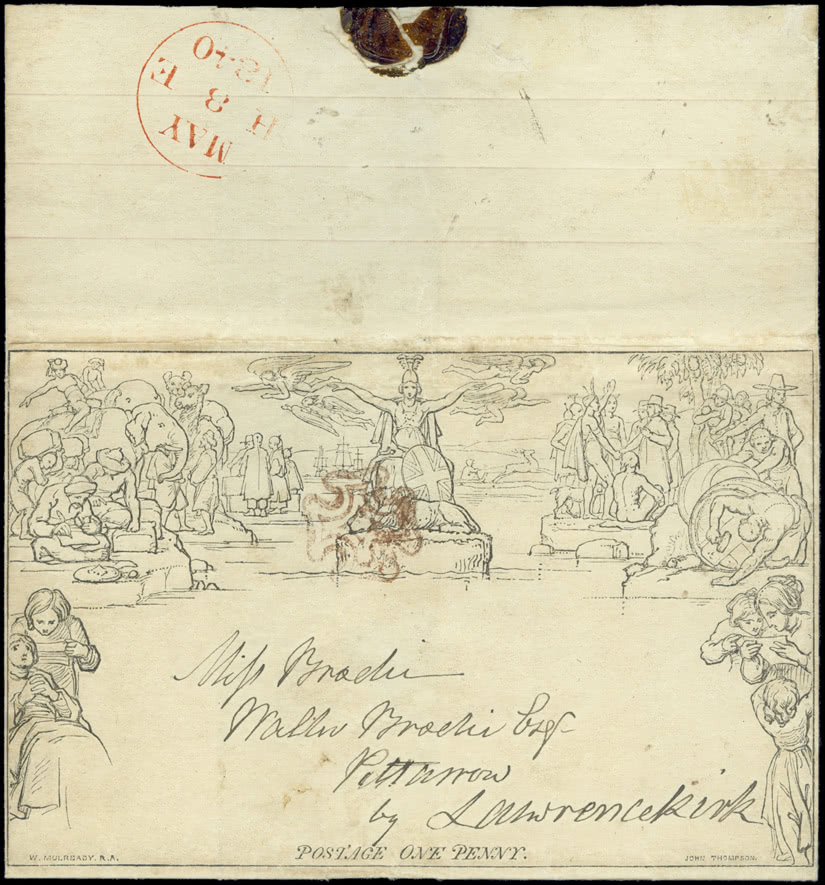 H MAY E
8
1840
Miss Brodie
Walter Brodie Esqr
Pittarrow
by Lawrencekirk
POSTAGE ONE PENNY.
W. MULREADY. R.A.
JOHN THOMPSON.